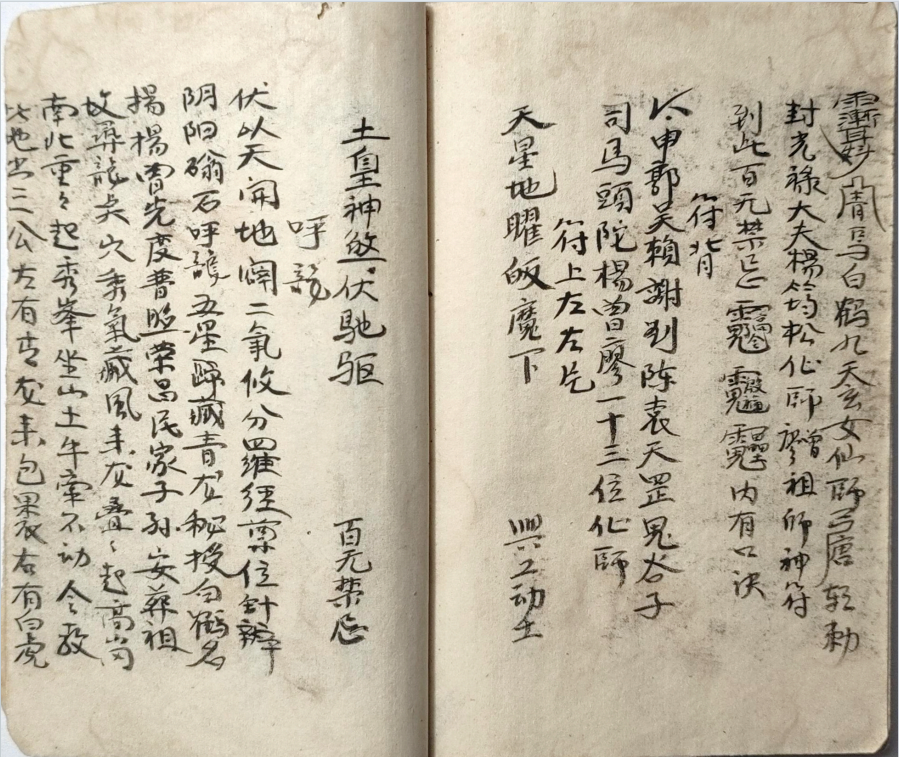 青鸟白鹤九天玄女仙師弓唐敕勅
封光禄大夫楊筠松仙師廖祖師神符
到此百无禁忌 内有口决
符背
申郭吴賴謝刘陈袁天罡鬼谷子
司馬頭陀楊曾廖一十三位仙師
符上左左片
天星地曜皈魔下 興工动土
土皇神煞伏馳驱 百无禁忌
呼龍
伏以天開地闢二氣攸分羅徑禀位針辨
阴阳磁石呼龍五星歸藏青龙秘授白鶴名
揚楊曾先度普照荣昌民家子孙安葬祖
故尋龍点穴秀氣藏風来龙叠々起高崗
南北重々起秀峯坐山土牛牢不动今教
此地出三公左有青龙来包裹右有白虎